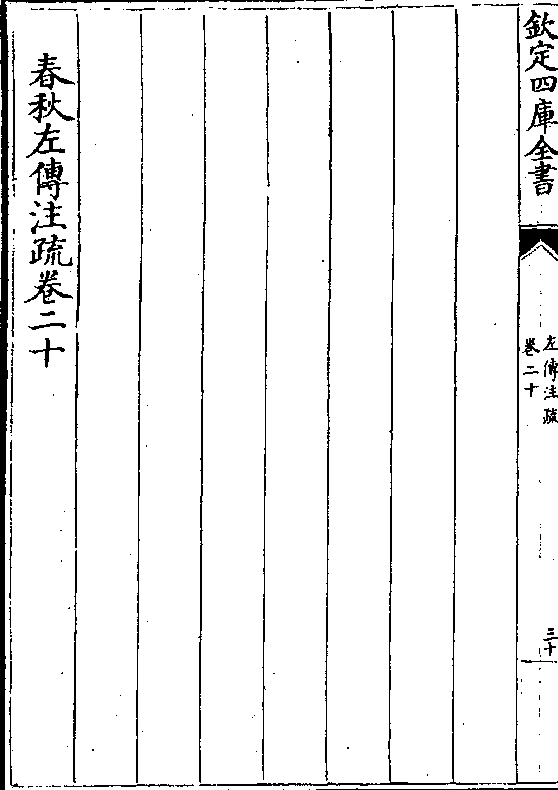 欽定四庫全書
左傳注疏
卷二十
三十
春秋左傳注疏卷二十